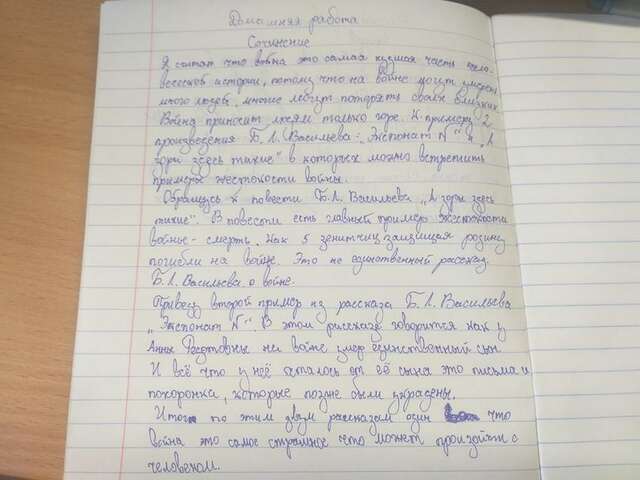 Домашняя работа
Сочинение
Я считаю что война это самая худшая часть чело-
веческой истории, потому что на войне могут умереть
много людей, многие могут потерять своих близких
Война приносит людям только горе. К примеру 2
произведения Б. Л. Васильева: „Экспонат №" и „А
зори здесь тихие" в которых можно встретить
примеры жестокости войны.
Обращусь к повести Б. Л. Васильева „А зори здесь
тихие". В повести есть главный пример жестокости
войны - смерть. Как 5 зенитчиц защищая родину
погибли на войне. Это не единственный рассказ.
Б. Л. Васильева о войне.
Приведу второй пример из рассказа Б. Л. Васильева
„Экспонат №". В этом рассказе говорится как у
Анны Федотовны на войне умер единственный сын
И всё что у неё осталось от её сына это письма и
похоронка, которые позже были украдены.
Итог по этим двум рассказам один что
война это самое страшное что может произойти с
человеком.